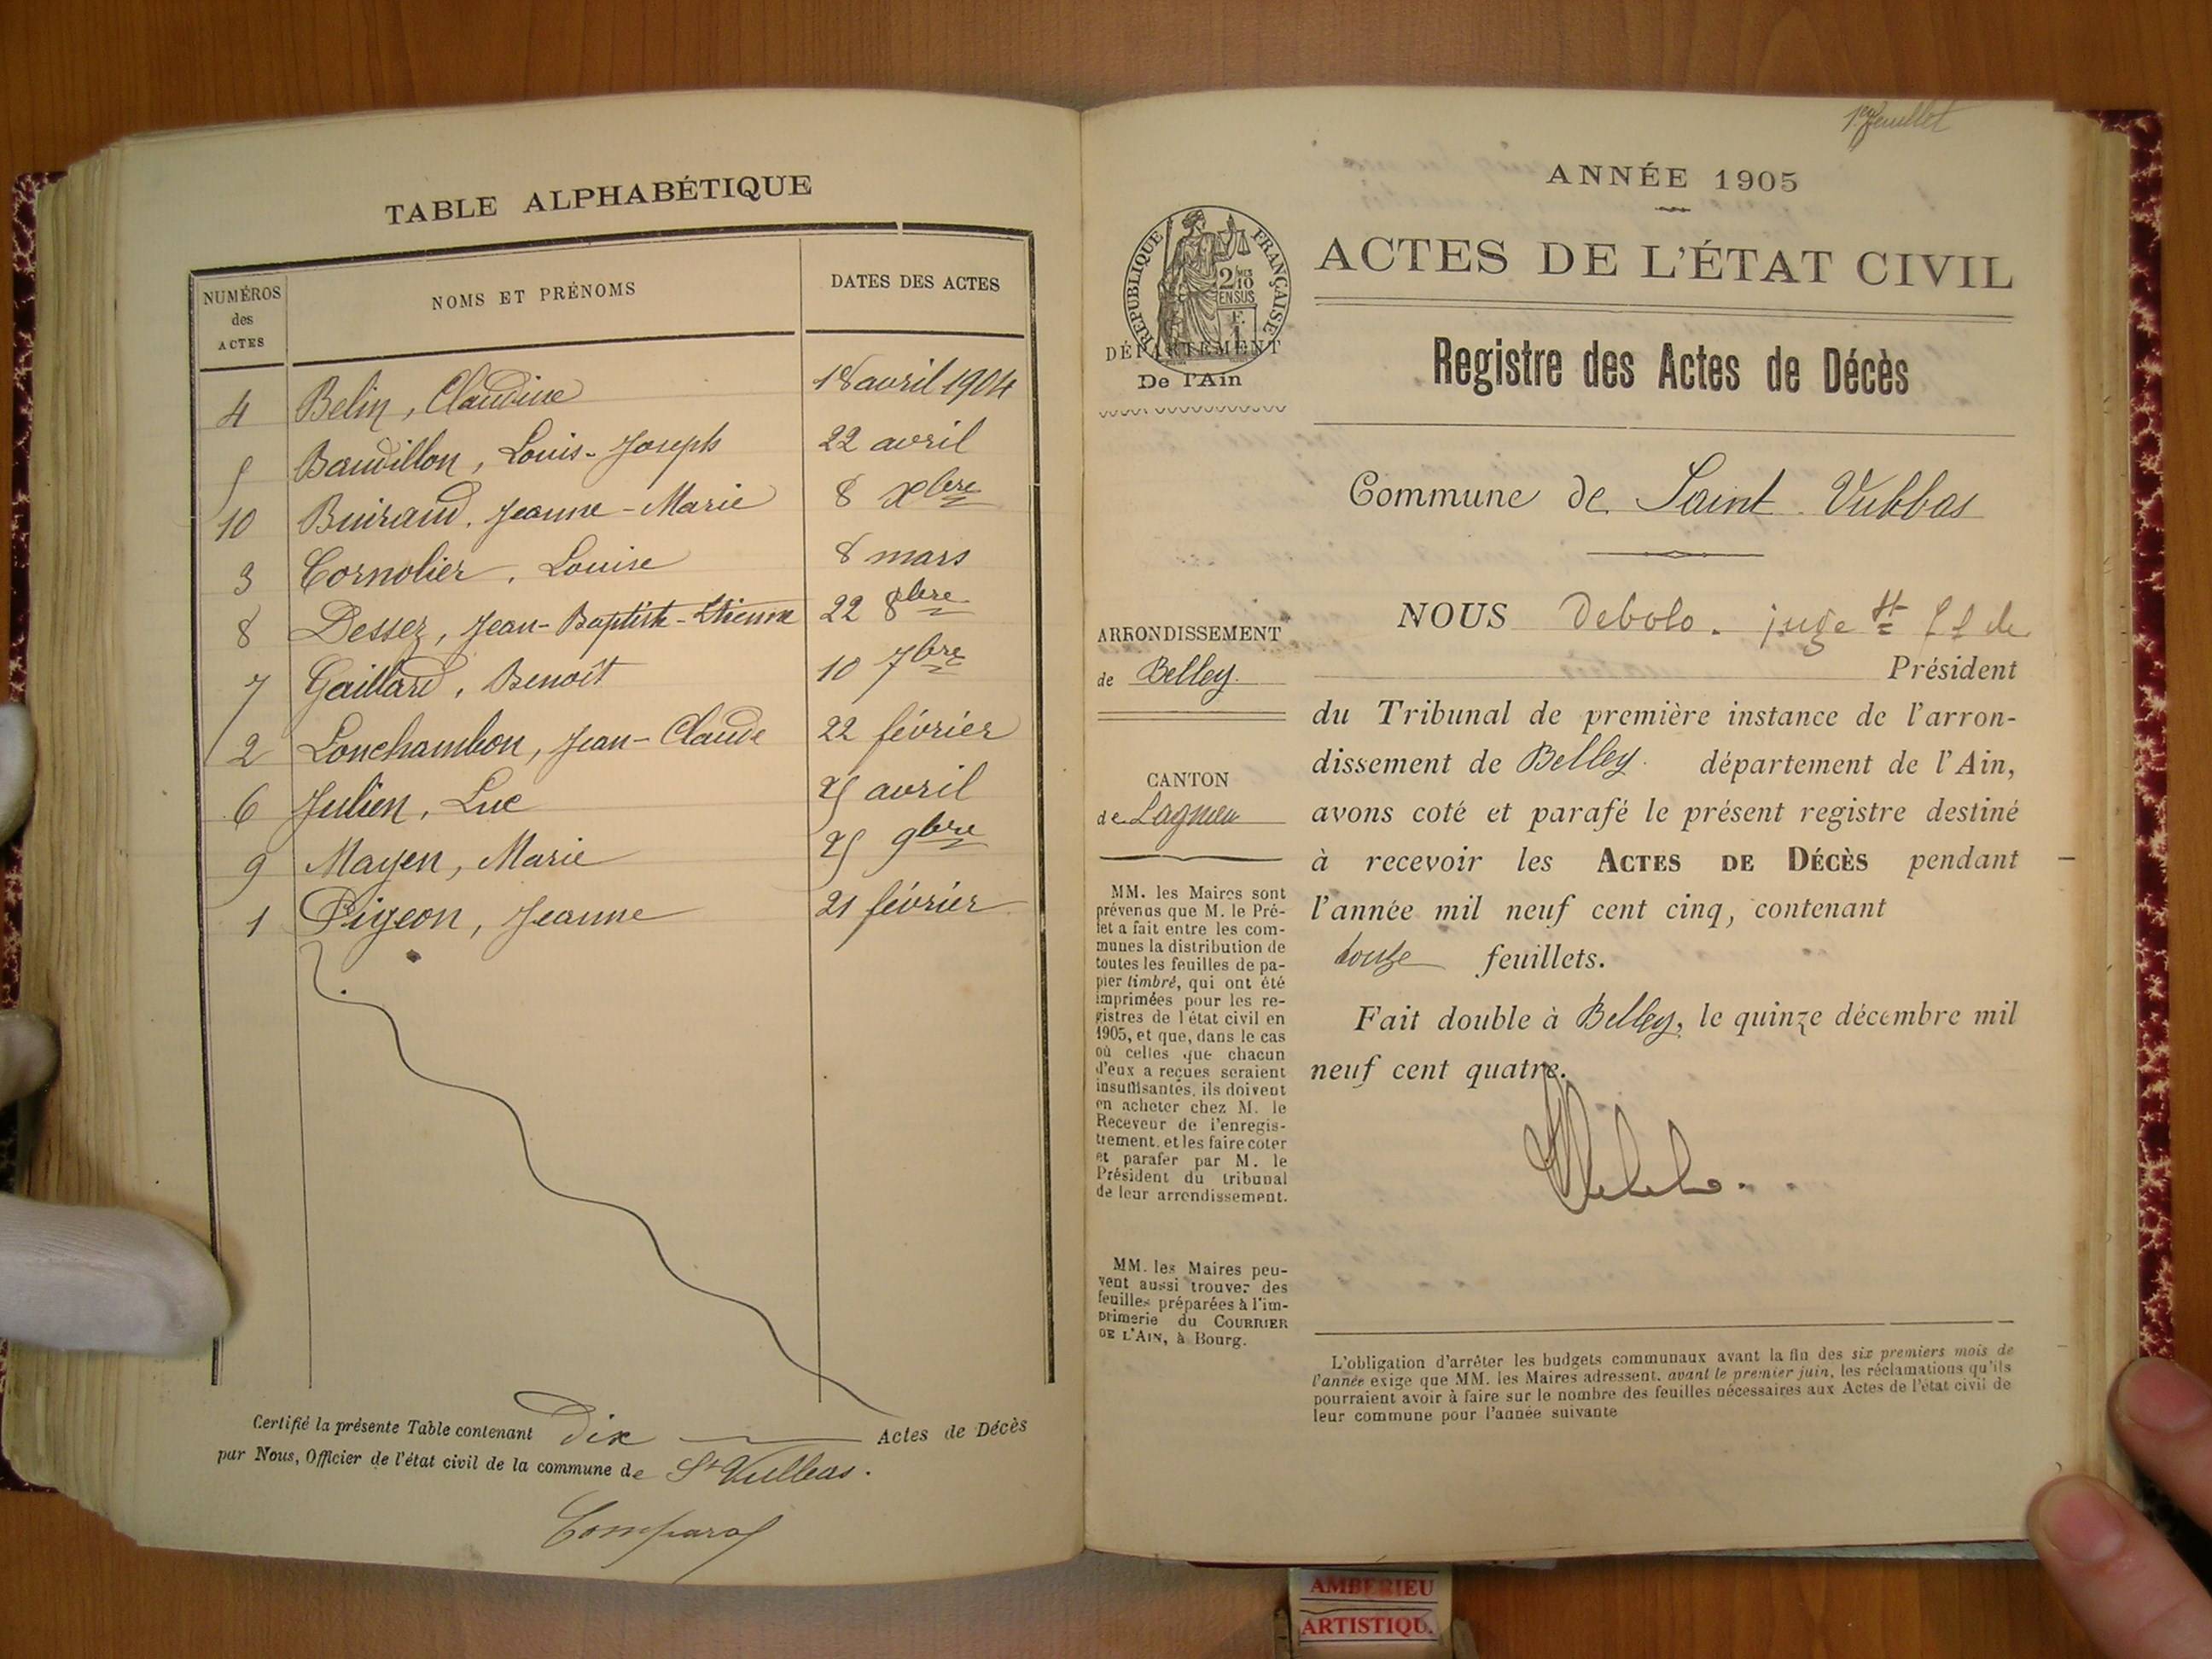 TABLE ALPHABÉTIQUE
NUMÉROS
des
ACTES
NOMS ET PRÉNOMS
DATES DES ACTES
4 Belin, Claudine 18 avril 1904
5 Baudillon, Louis-Joseph 22 avril
10 Buiraud, Jeanne-Marie 8 Xbre
3 Cornolier, Louise 8 mars
8 Dessez, Jean-Baptiste-Etienne 22 8bre
7 Gaillard, Benoît 10 7bre
2 Lonchambon, Jean-Claude 22 février
6 Julien, Luc 25 avril
9 Mayen, Marie 25 9bre
1 Pigeon, Jeanne 21 février
Certifié la présente Table contenant Dix Actes de Décès
par Nous, Officier de l'état civil de la commune de St Vulbas.
1er feuillet
ANNÉE 1905
ACTES DE L'ÉTAT CIVIL
RÉPUBLIQUE FRANÇAISE
2/10
EN SUS
F.
1
DÉPARTEMENT
De l'Ain
Registre des Actes de Décès
Commune de Saint Vulbas
ARRONDISSEMENT
de Belley.
CANTON
de Lagnieu
MM. les Maires sont
prévenus que M. le Pré-
fet a fait entre les com-
munes la distribution de
toutes les feuilles de pa-
pier timbré, qui ont été
imprimées pour les re-
gistres de l'état civil en
1905, et que, dans le cas
où celles que chacun
d'eux a reçues seraient
insuffisantes, ils doivent
en acheter chez M. le
Receveur de l'enregis-
trement, et les faire coter
et parafer par M. le
Président du tribunal
de leur arrondissement.
MM. les Maires peu-
vent aussi trouver des
feuilles préparées à l'im-
primerie du COURRIER
DE L'AIN, à Bourg.
NOUS Debolo. juge st ff de
Président
du Tribunal de première instance de l'arron-
dissement de Belley. département de l'Ain,
avons coté et parafé le présent registre destiné
à recevoir les ACTES DE DÉCÈS pendant
l'année mil neuf cent cinq, contenant
douze feuillets.
Fait double à Belley, le quinze décembre mil
neuf cent quatre.
L'obligation d'arrêter les budgets communaux avant la fin des six premiers mois de
l'année exige que MM. les Maires adressent, avant le premier juin, les réclamations qu'ils
pourraient avoir à faire sur le nombre des feuilles nécessaires aux Actes de l'état civil de
leur commune pour l'année suivante
AMBERIEU
ARTISTIQU.